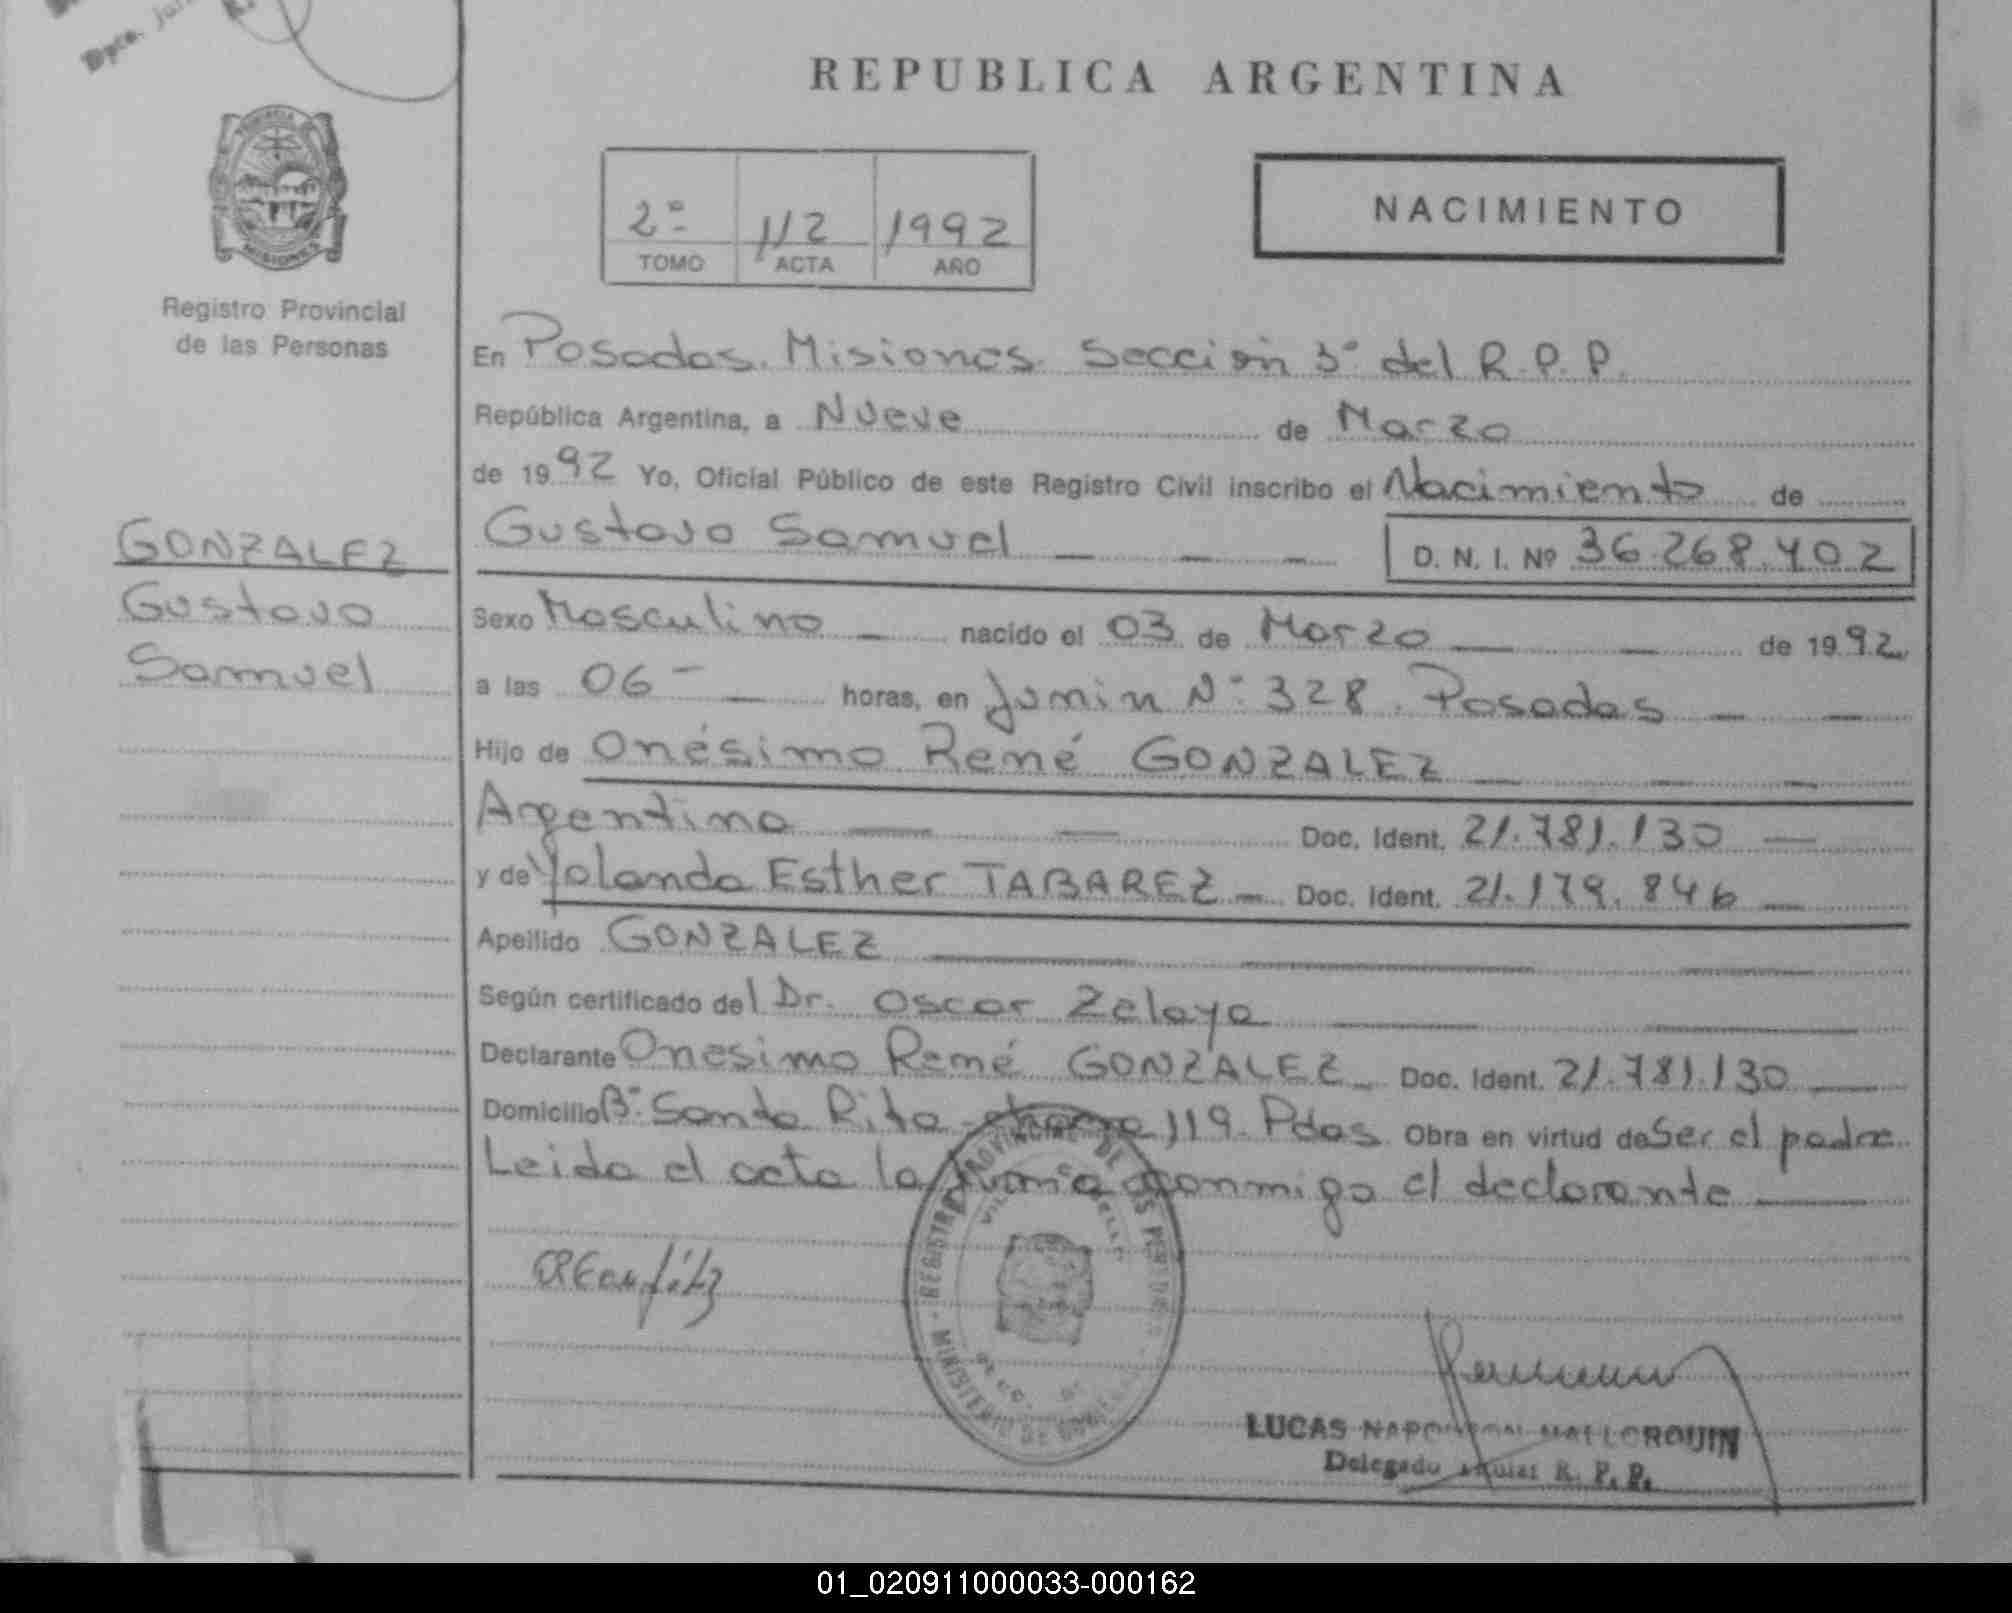 Dpto.
REPUBLICA ARGENTINA
PROVINCIA DE MISIONES
Registro Provincial
de las Personas
2º 112 1992
TOMO ACTA AÑO
NACIMIENTO
GONZALEZ
Gustavo
Samuel
En Posadas. Misiones. Sección 3º del R.P.P.
República Argentina, a Nueve de Marzo
de 1992 Yo, Oficial Público de este Registro Civil inscribo el Nacimiento de
Gustavo Samuel D. N. I. Nº 36.268.402
Sexo Masculino nacido el 03 de Marzo de 1992
a las 06 horas, en Junin Nº 328. Posadas
Hijo de Onésimo René GONZALEZ
Argentino Doc. Ident. 21.781.130
y de Yolanda Esther TABAREZ Doc. Ident. 21.179.846
Apellido GONZALEZ
Según certificado del Dr. Oscar Zelaya
Declarante Onesimo René GONZALEZ Doc. Ident. 21.781.130
Domicilio Bº Santa Rita chacra 119. Pdas. Obra en virtud de Ser el padre
Leida el acta la firma conmigo el declarante
REGISTRO PROVINCIAL DE LAS PERSONAS
MINISTERIO DE
LUCAS NAPOLEON MALLORQUIN
Delegado R. P. P.
01_020911000033-000162